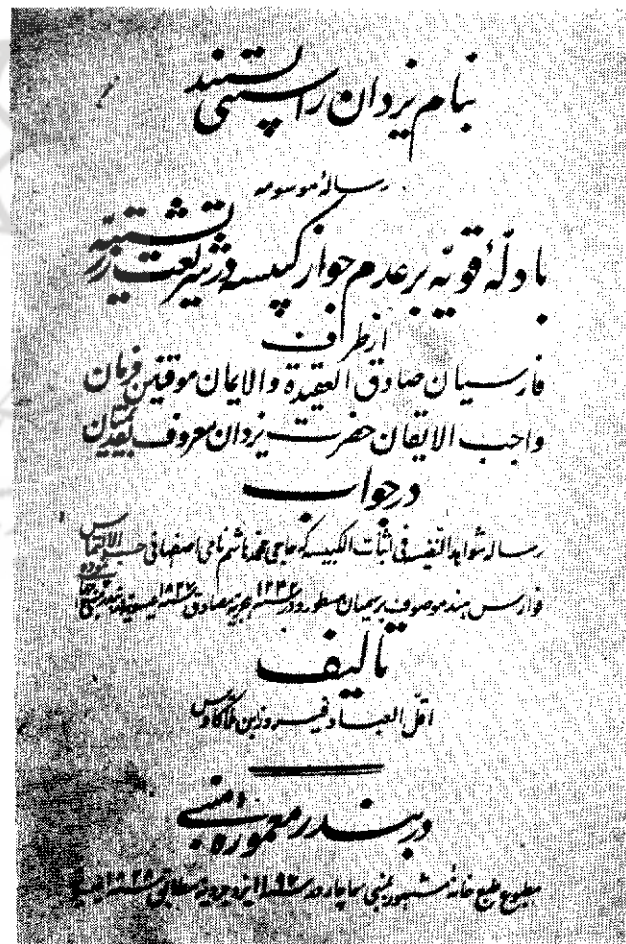 بنام یزدان راستی پسند
رساله موسومه
بادلّهٔ قویّه بر عدم جواز کبیسه در شریعت زرتشتیّه
از طرف
فارسیان صادق العقیدة والایمان موقنین فرمان
واجب الایقان حضرت یزدان معروف بقدیمیان
در جواب
رساله شواهد النفیسه فی اثبات الکبیسه که حاجی محمد هاشم نامی اصفهانی حسب الالتماس
فوارس هند موصوف بریسمان مسطور و در ۱۲۴۲ هجریه مطابق ۱۸۲۷ عیسویه
تألیف
اقلّ العباد فیروز ابن ملا کاوس
در بندر معمورهٔ منبی
مطبوع طبع خانهٔ مشهور بمنبی سماچار در